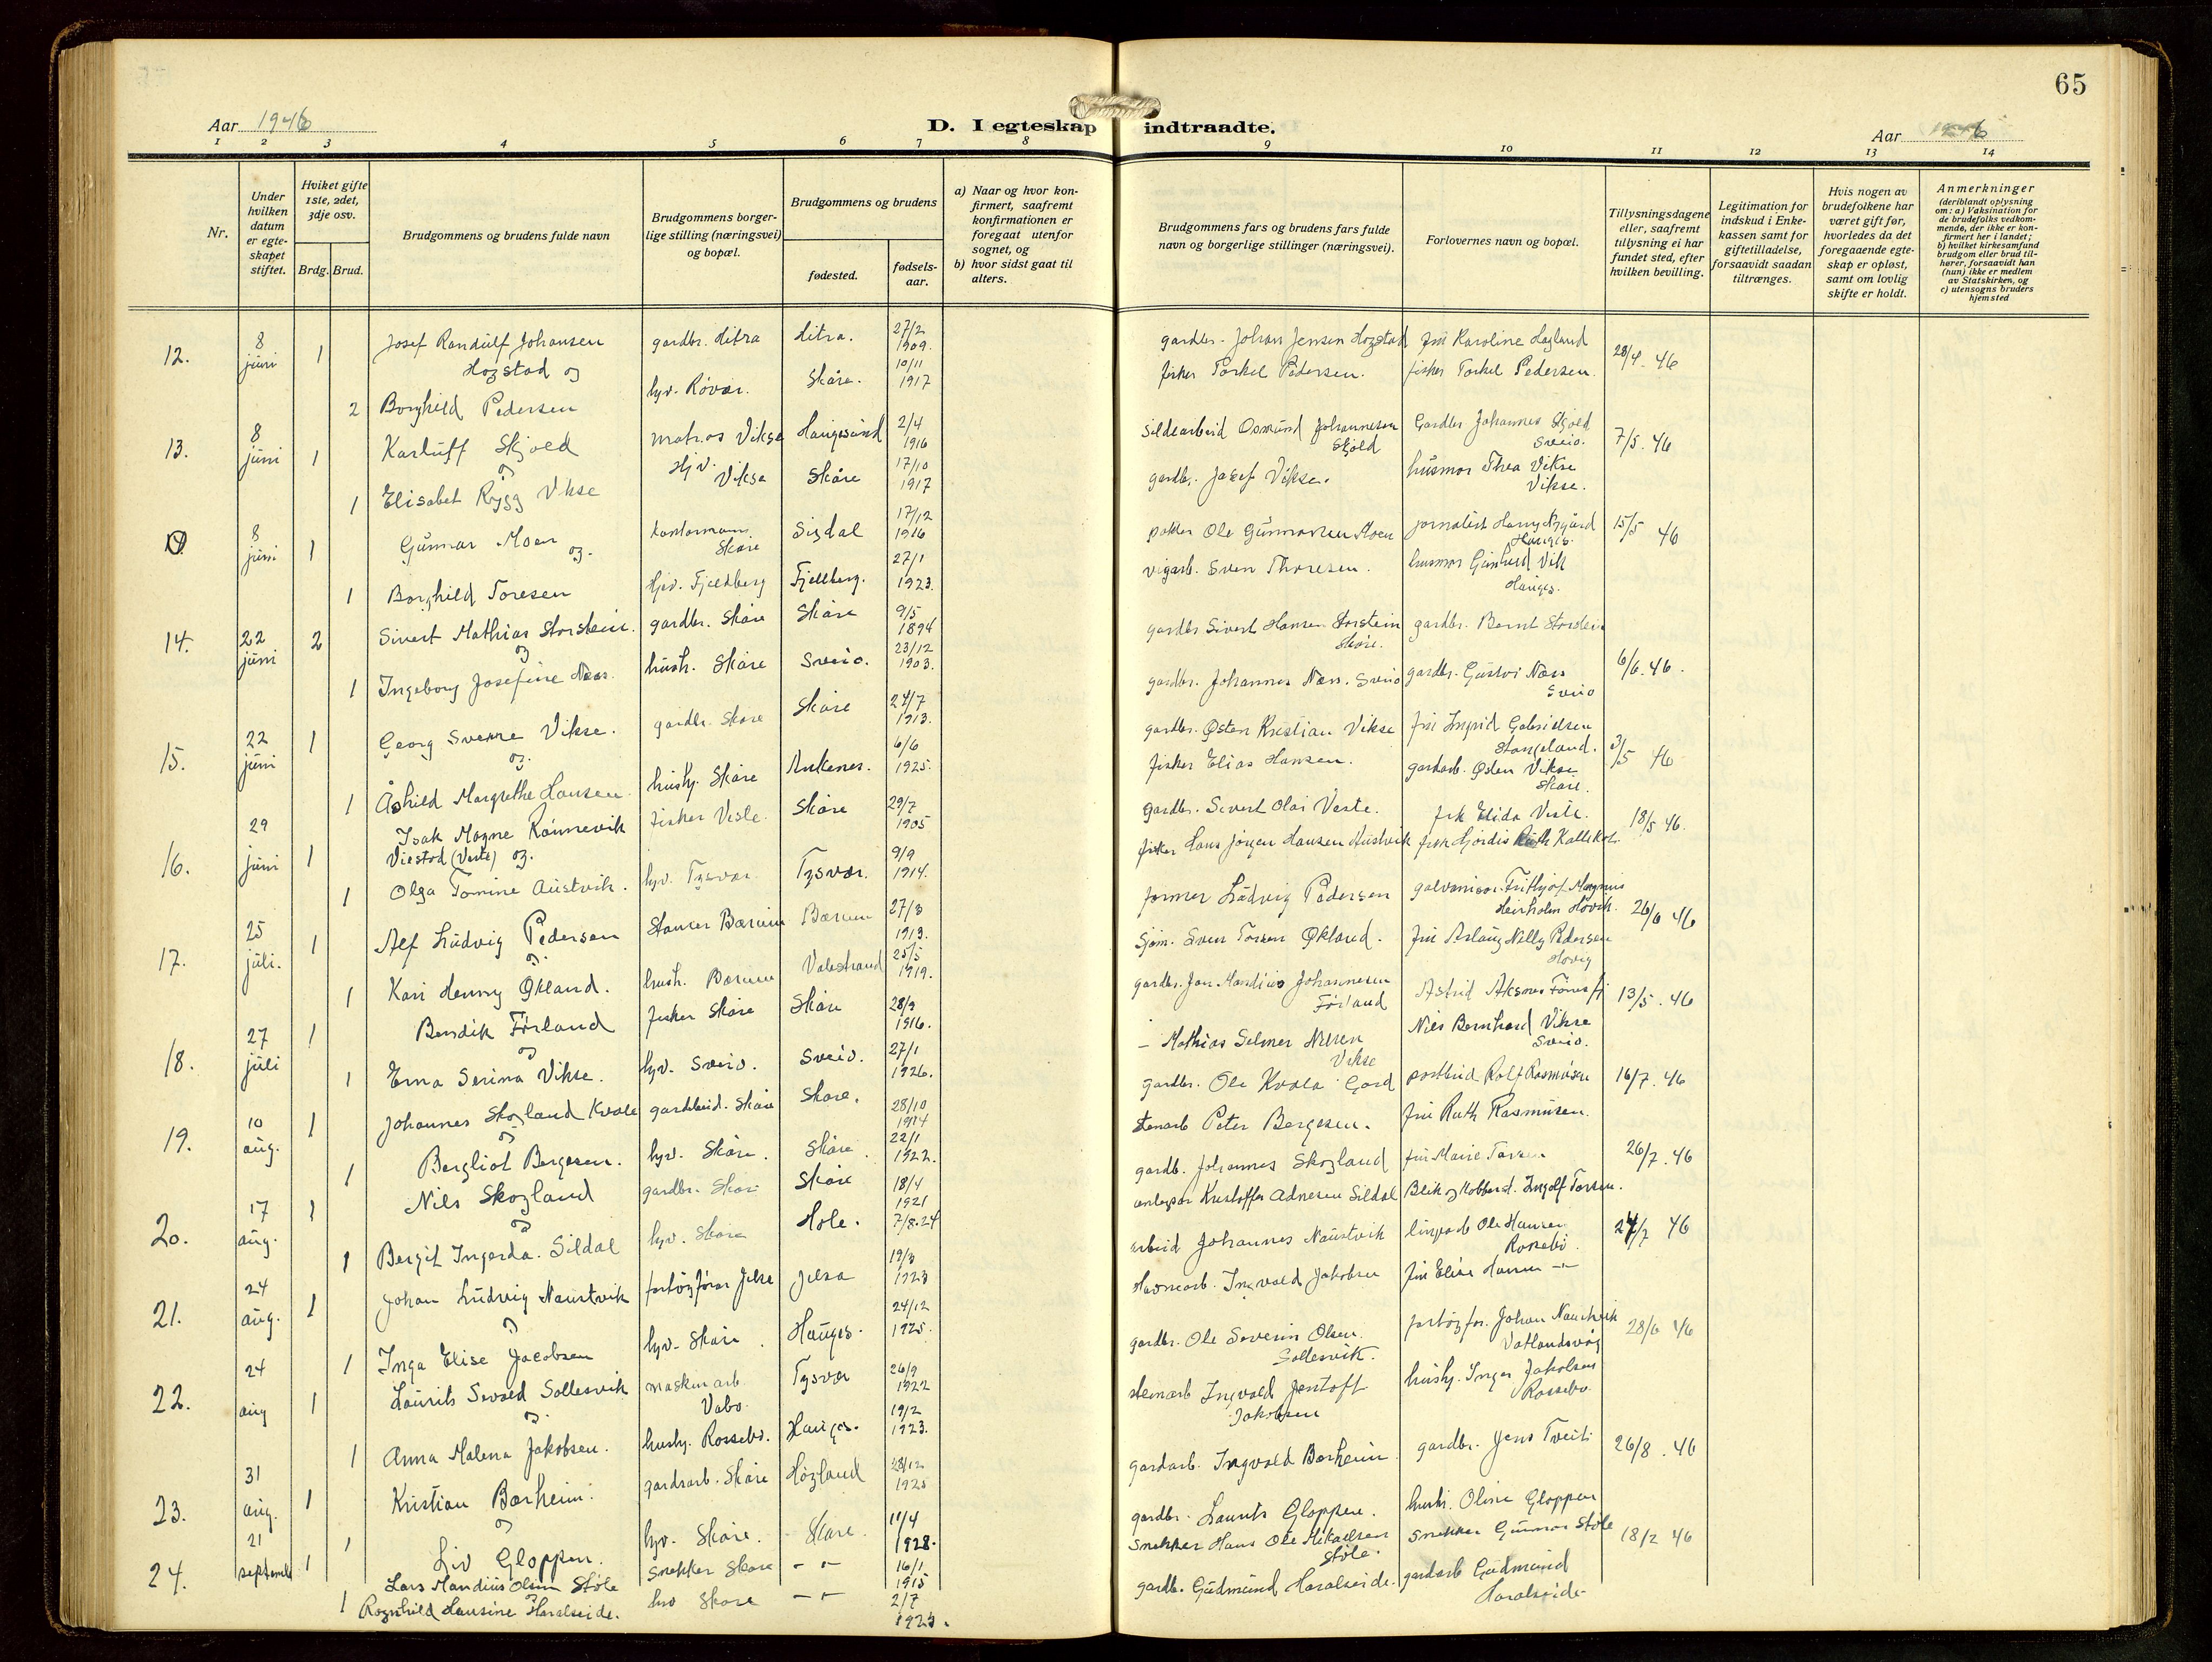 65
Aar 1946
D. I egteskap indtraadte.
Aar 1946
1 2 3 4 5 6 7 8 9 10 11 12 13 14
Nr.
Under hvilken datum er egte-skapet stiftet.
Hviket gifte 1ste, 2det, 3dje osv.
Brdg. Brud.
Brudgommens og brudens fulde navn
Brudgommens borger-lige stilling (næringsvei) og bopæl.
Brudgommens og brudens
fødested.
fødsels-aar.
a) Naar og hvor kon-firmert, saafremt konfirmationen er foregaat utenfor sognet, og
b) hvor sidst gaat til alters.
Brudgommens fars og brudens fars fulde navn og borgerlige stillinger (næringsvei).
Forlovernes navn og bopæl.
Tillysningsdagene eller, saafremt tillysning ei har fundet sted, efter hvilken bevilling.
Legitimation for indskud i Enke-kassen samt for giftetilladelse, forsaavidt saadan tiltrænges.
Hvis nogen av brudefolkene har været gift før, hvorledes da det foregaaende egte-skap er opløst, samt om lovlig skifte er holdt.
Anmerkninger (deriblandt oplysning om: a) Vaksination for de brudefolks vedkom-mende, der ikke er kon-firmert her i landet; b) hvilket kirkesamfund brudgom eller brud til-hører, forsaavidt han (hun) ikke er medlem av Statskirken, og c) utensogns bruders hjemsted
12. 8 juni 1 Josef Randulf Johansen Hogstad og gardbr. Hitra Hitra. 27/2 1909. gardbr. Johan Jensen Hogstad fru Karoline Hagland 28/4 46
2 Borghild Pedersen hjv. Røvær. Skåre. 10/11 1917 fisker Torkel Pedersen. fisker Torkel Pedersen.
13. 8 juni 1 Karluff Skjold og matros Vikse Haugesund 2/4 1916 Sildearbeid Osmund Johannesen Skjold Gardbr Johannes Skjold Sveio. 7/5. 46
1 Elisabet Rygg Vikse Hjv. Vikse Skåre 17/10 1917 gardbr. Josef Vikse. husmor Thea Vikse Vikse.
8 juni 1 Gunnar Moen og. kontormann Skåre Sigdal 17/12 1916 Ole Gunnarsen Moen jornalist Harry Hauges. 15/5 46
1 Borghild Toresen hjv. Fjeldberg Fjellberg. 27/1 1923. vegarb. Sven Thoresen. husmor Gunhild Vik Hauges.
14. 22 juni 2 Sivert Mathias Storstein. og gardbr. Skåre Skåre 9/5 1894 gardbr Sivert Hansen Storstein Skåre. gardbr. Bernt Storstein 6/6. 46.
1 Ingeborg Josefine Næss. hush. Skåre Sveio. 23/12 1903. gardbr. Johannes Næss. Sveio gardbr. Gustav Næss Sveio
15. 22 juni 1 Georg Sverre Vikse. og. gardbr. Skåre Skåre 24/7 1913. gardbr. Østen Kristian Vikse fru Ingrid Gabrielsen Stangeland. 3/5 46
1 Åshild Margrethe Hansen hushj. Skåre Ankenes. 6/6 1925. fisker Elias Hansen. gardarb. Østen Vikse Skåre.
16. 29 juni 1 Isak Magne Rønnevik Viestad (Veste) og. fisker Veste. Skåre 29/7 1905 gardbr. Sivert Olai Veste. frk Elida Veste. 18/5 46.
1 Olga Tomine Austvik. hjv. Tysvær. Tysvær. 9/9 1914. fisker Hans Jørgen Hansen Austvik frk Hjørdis Ruth
17. 25 juli. 1 Alf Ludvig Pedersen og. Stanser Bærum Bærum 27/3 1913. former Ludvig Pedersen galvanisør. Frithjof Magnus Høvik. 26/6 46
1 Kari Henny Økland. hush. Bærum Valestrand 25/5 1919. Sjøm. Sven Torsen Økland. fru Aslaug Nelly Pedersen Høvig
18. 27 juli 1 Bendik Førland og fisker Skåre Skåre 28/9 1916. gardbr. Jan Mandius Johannesen Førland Astrid Aksnes 13/5. 46
1 Erna Serina Vikse. hjv. Sveio. Sveio. 27/1 1926. – Mathias Selmer Nilsen Vikse Nils Bernhard Vikse Sveio.
19. 10 aug. 1 Johannes Skogland Kvale og gardsbeid. Skåre Skåre. 28/10 1914 gardbr. Ole Kvale Gard postbud Rolf Rasmusen 16/7. 46
1 Bergliot Bergesen. hjv. Skåre. Skåre. 22/1 1922. stenarb Peter Bergesen. fru Ruth Rasmusen.
20. 17 aug. 1 Nils Skogland og gardbr. Skåre Skåre 18/4 1921 gardb. Johannes Skogland fru Marie Torsen 26/7. 46
1 Bergit Ingerda. Sildal hjv. Skåre Hole. 7/8.24 anlegsar Kristoffer Adnesen Sildal Blik og Kobbersl. Ingolf Torsen.
21. 24 aug. 1 Johan Ludvig Naustvik og fartøyfører Jelsa Jelsa 19/3 1923 arbeid Johannes Naustvik Ole Hansen Rossebø. 24/7 46
1 Inga Elise Jacobsen hjv. Skåre. Hauges. 24/12 1925. Havnearb. Ingvald Jakobsen fru Elise Hansen –"–
22. 24 aug 1 Laurits Sevald Sollesvik og. maskinarb. Vabo. Tysvær 26/9 1922 gardbr. Ole Severin Olsen. Sollesvik. fartøyfør. Johan Naustvik Vatlandsvåg 28/6 46
1 Anna Malena Jakobsen. hushj. Rossebø. Hauges. 19/2 1923. stenarb Ingvald Jentoft Jakobsen hushj. Inger Jakobsen Rossebø
23. 31 aug. 1 Kristian Børheim. og gardsarb. Skåre Høgland 28/12 1925 gardarb. Ingvald Børheim gardbr. Jens Tveit 26/8. 46
1 Liv Gloppen. hjv. Skåre. Skåre. 11/4 1928. gardbr. Laurits Gloppen. hush. Oline Gloppen
24. 21 septembe 1 Lars Mandius Olsen Støle og Snekker Skåre – " – 16/1 1915 Snekker Hans Ole Mikaelsen Støle. snekker Gunnar Støle 18/2 46
1 Ragnhild Hansine Haralseide. hus Skåre – " – 2/7 1923. gardb. Gudmund Haralseide. gardarb Gudmund Haralseide